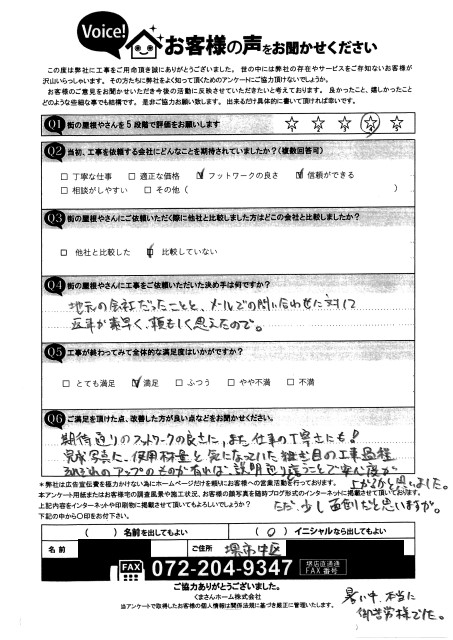 Voice!
お客様の声をお聞かせください
この度は弊社に工事をご用命頂き誠にありがとうございました。 世の中には弊社の存在やサービスをご存知ないお客様が
沢山いらっしゃいます。 その方たちに弊社をよく知って頂くためのアンケートにご協力頂けないでしょうか。
お客様のご意見をお聞かせいただき今後の活動に反映させていただきたいと考えております。 良かったこと、嬉しかったこと
どのような些細な事でも結構です。 是非ご協力お願い致します。 出来るだけ具体的に書いて頂ければ幸いです。
Q1 街の屋根やさんを5段階で評価をお願いします ☆ ☆ ☆ ☆ ☆
Q2 当初、工事を依頼する会社にどんなことを期待されていましたか?(複数回答可)
□ 丁寧な仕事 □ 適正な価格 ☑ フットワークの良さ ☑ 信頼ができる
□ 相談がしやすい □ その他 ( )
Q3 街の屋根やさんにご依頼いただく際に他社と比較しました方はどこの会社と比較しましたか?
□ 他社と比較した ☑ 比較していない
Q4 街の屋根やさんに工事をご依頼いただいた決め手は何ですか?
地元の会社だったことと、メールでの問い合わせに対して
返事が素早く、頼もしく思えたので。
Q5 工事が終わってみて全体的な満足度はいかがですか?
□ とても満足 ☑ 満足 □ ふつう □ やや不満 □ 不満
Q6 ご満足を頂けた点、改善した方が良い点などをお聞かせください。
期待通りのフットワークの良さに、また仕事の丁寧さにも!
完成写真に、使用材量と気になっていた継ぎ目の工事過程
それぞれのアップのものがあれば、説明通り違うことで安心度が
上がるかと思いました。
*弊社は広告宣伝費を極力かけない為にホームページだけを頼りにお客様への営業活動を行っております。
本アンケート用紙またはお客様宅の調査風景や施工状況、お客様の顔写真を随時ブログ形式のインターネットに掲載させて頂いております。
上記内容をインターネットや印刷物に掲載させて頂いてもよろしいでしょうか?
ただ、少し面倒だと思いますが。
下記の中から〇印をお付下さい。
( ) 名前を出してもよい ( 〇 ) イニシャルなら出してもよい
名 前 ご住所 堺市中区
FAX 072-204-9347 堺店直通 FAX番号
ご協力ありがとうございました。
くまさんホーム株式会社
当アンケートで取得したお客様の個人情報は関係法規に基づき厳正に管理いたします。
暑い中、本当に
御苦労様でした。